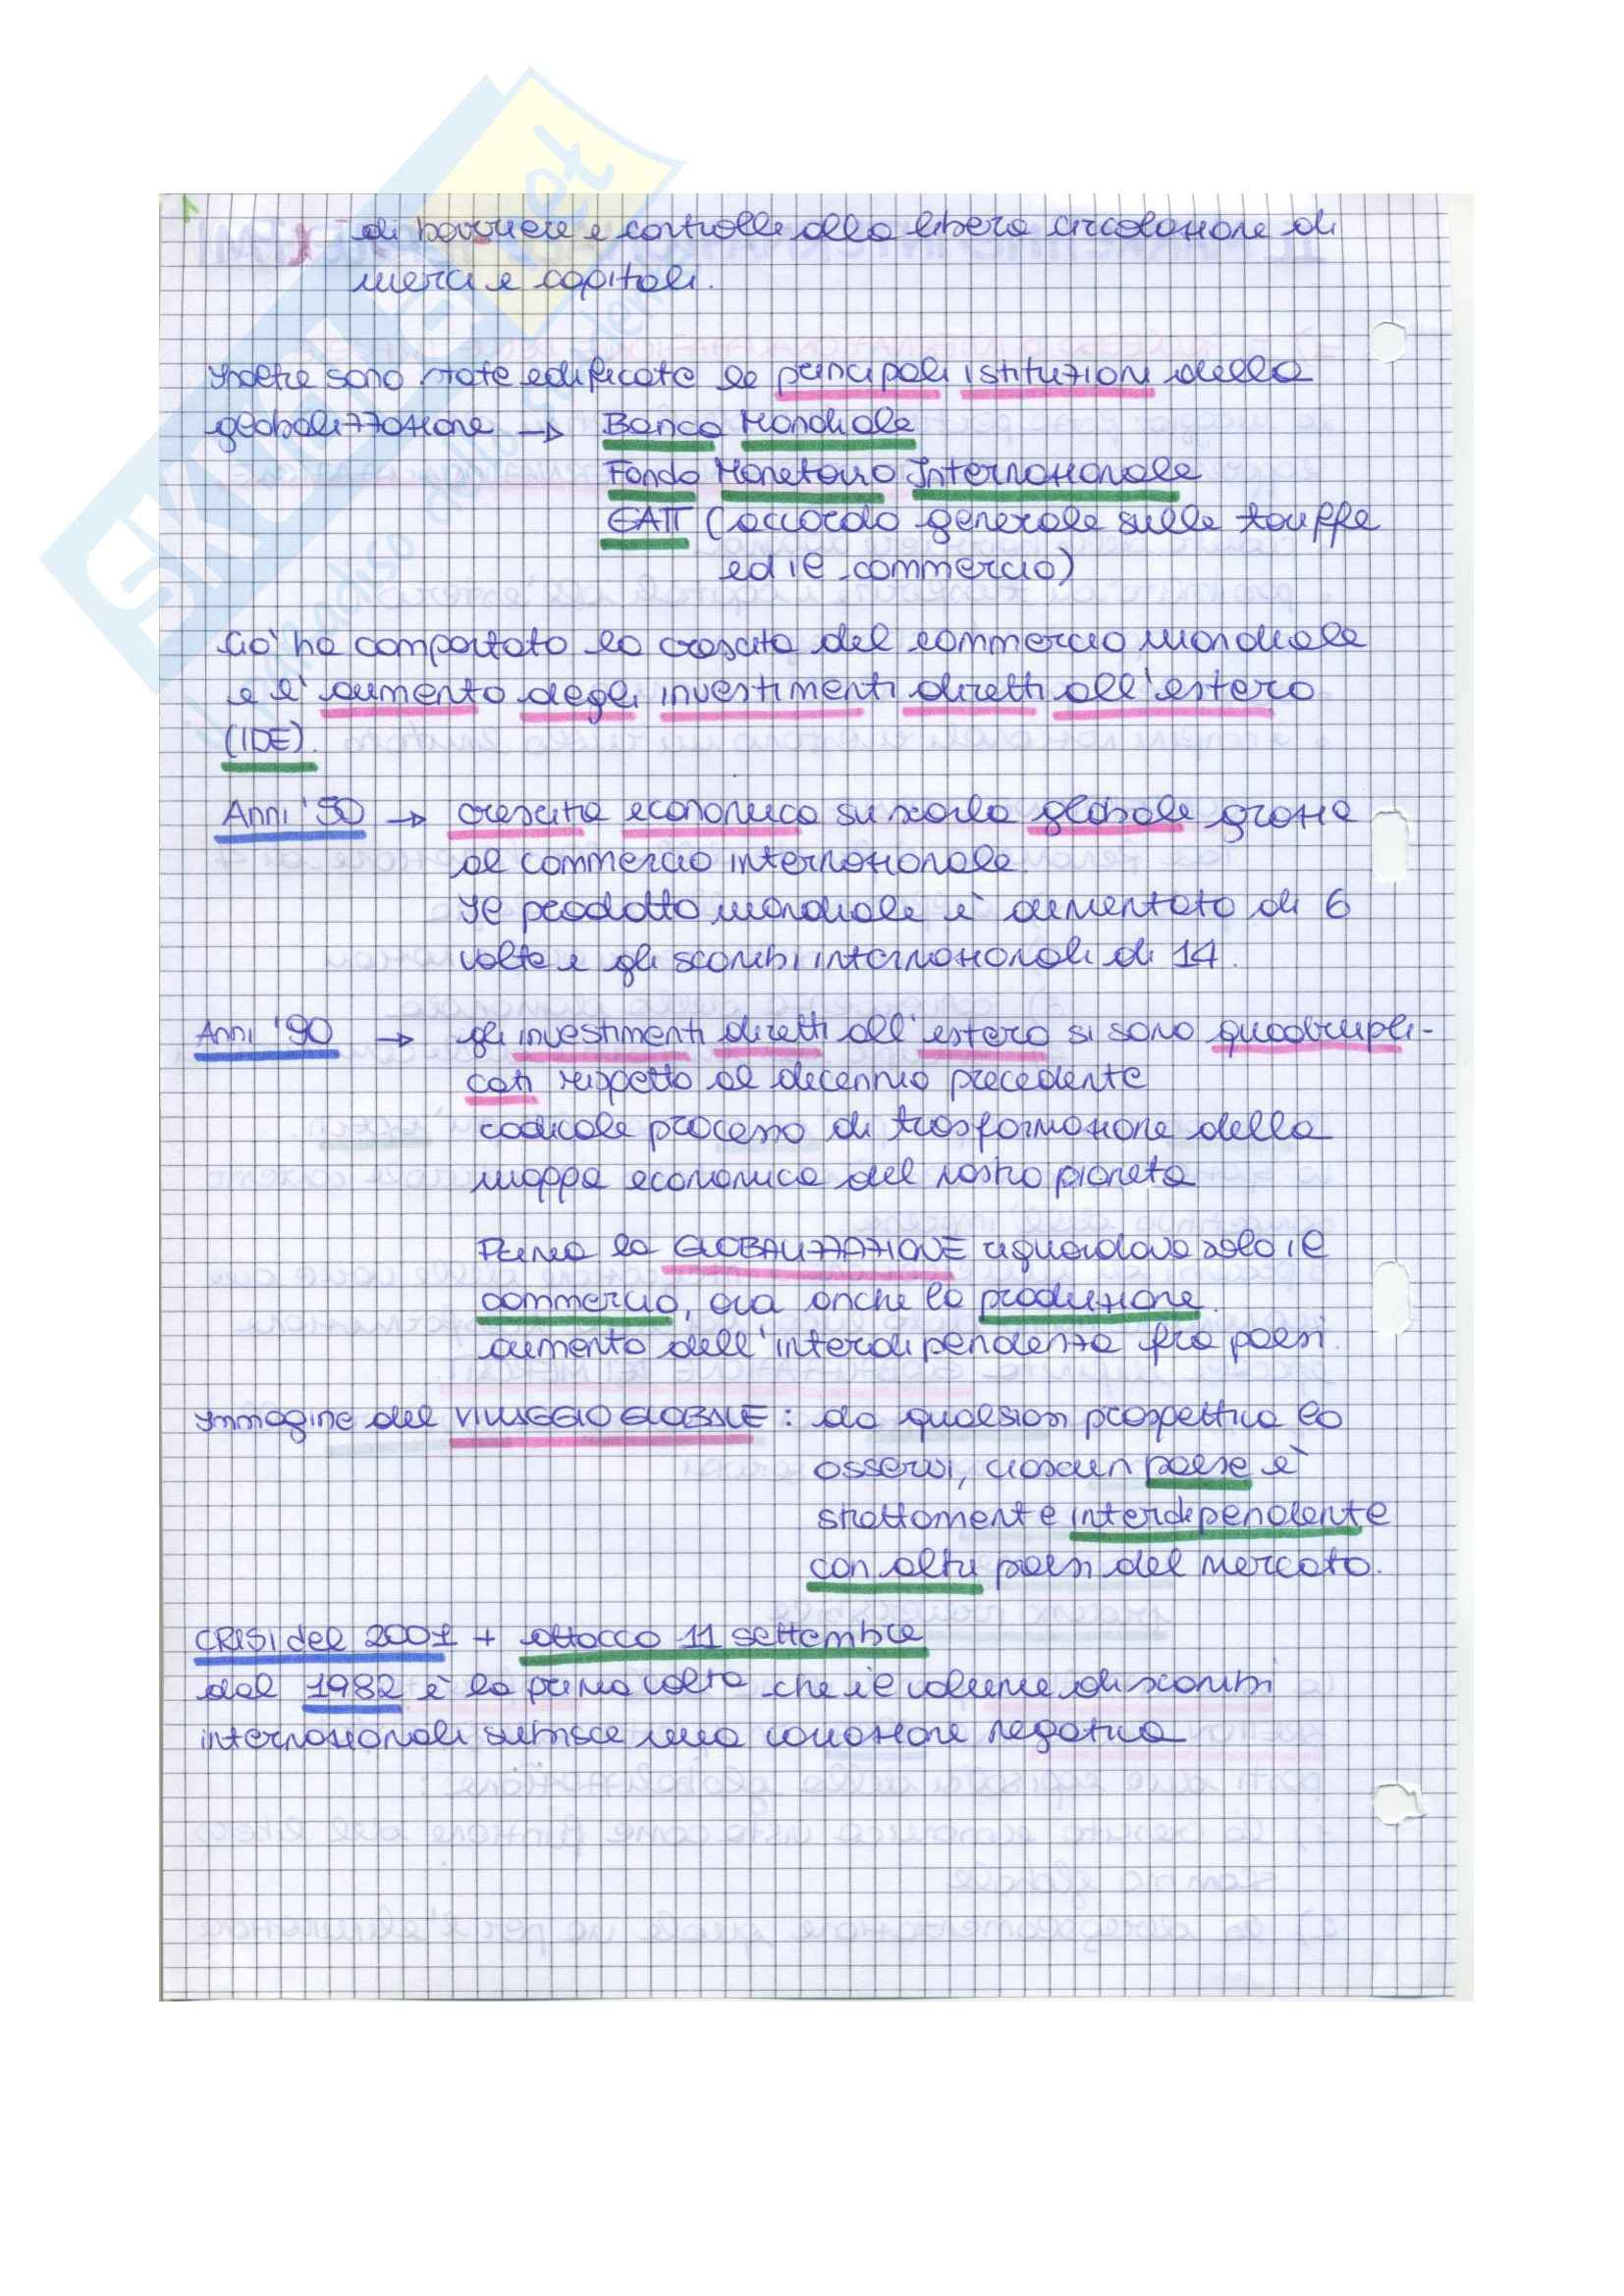 1
di barriere e controlli alla libera circolazione di
merci e capitali.
Inoltre sono state edificate le principali istituzioni della
globalizzazione → Banca Mondiale
Fondo Monetario Internazionale
GATT (accordo generale sulle tariffe
ed il commercio)
Ciò ha comportato la crescita del commercio mondiale
e l'aumento degli investimenti diretti all'estero
(IDE).
Anni '50 → crescita economica su scala globale grazie
al commercio internazionale.
Il prodotto mondiale è aumentato di 6
volte e gli scambi internazionali di 14.
Anni '90 → gli investimenti diretti all'estero si sono quadrupli-
cati rispetto al decennio precedente
radicale processo di trasformazione della
mappa economica del nostro pianeta
Prima la GLOBALIZZAZIONE riguardava solo il
commercio, ora anche la produzione.
aumento dell'interdipendenza fra paesi.
Immagine del VILLAGGIO GLOBALE : da qualsiasi prospettiva lo
osservi, ciascun paese è
strettamente interdipendente
con altri paesi del mercato.
CRISI del 2001 + attacco 11 settembre
dal 1982 è la prima volta che il volume di scambi
internazionali subisce una variazione negativa
SKUOLA.net
il paradiso dello studente